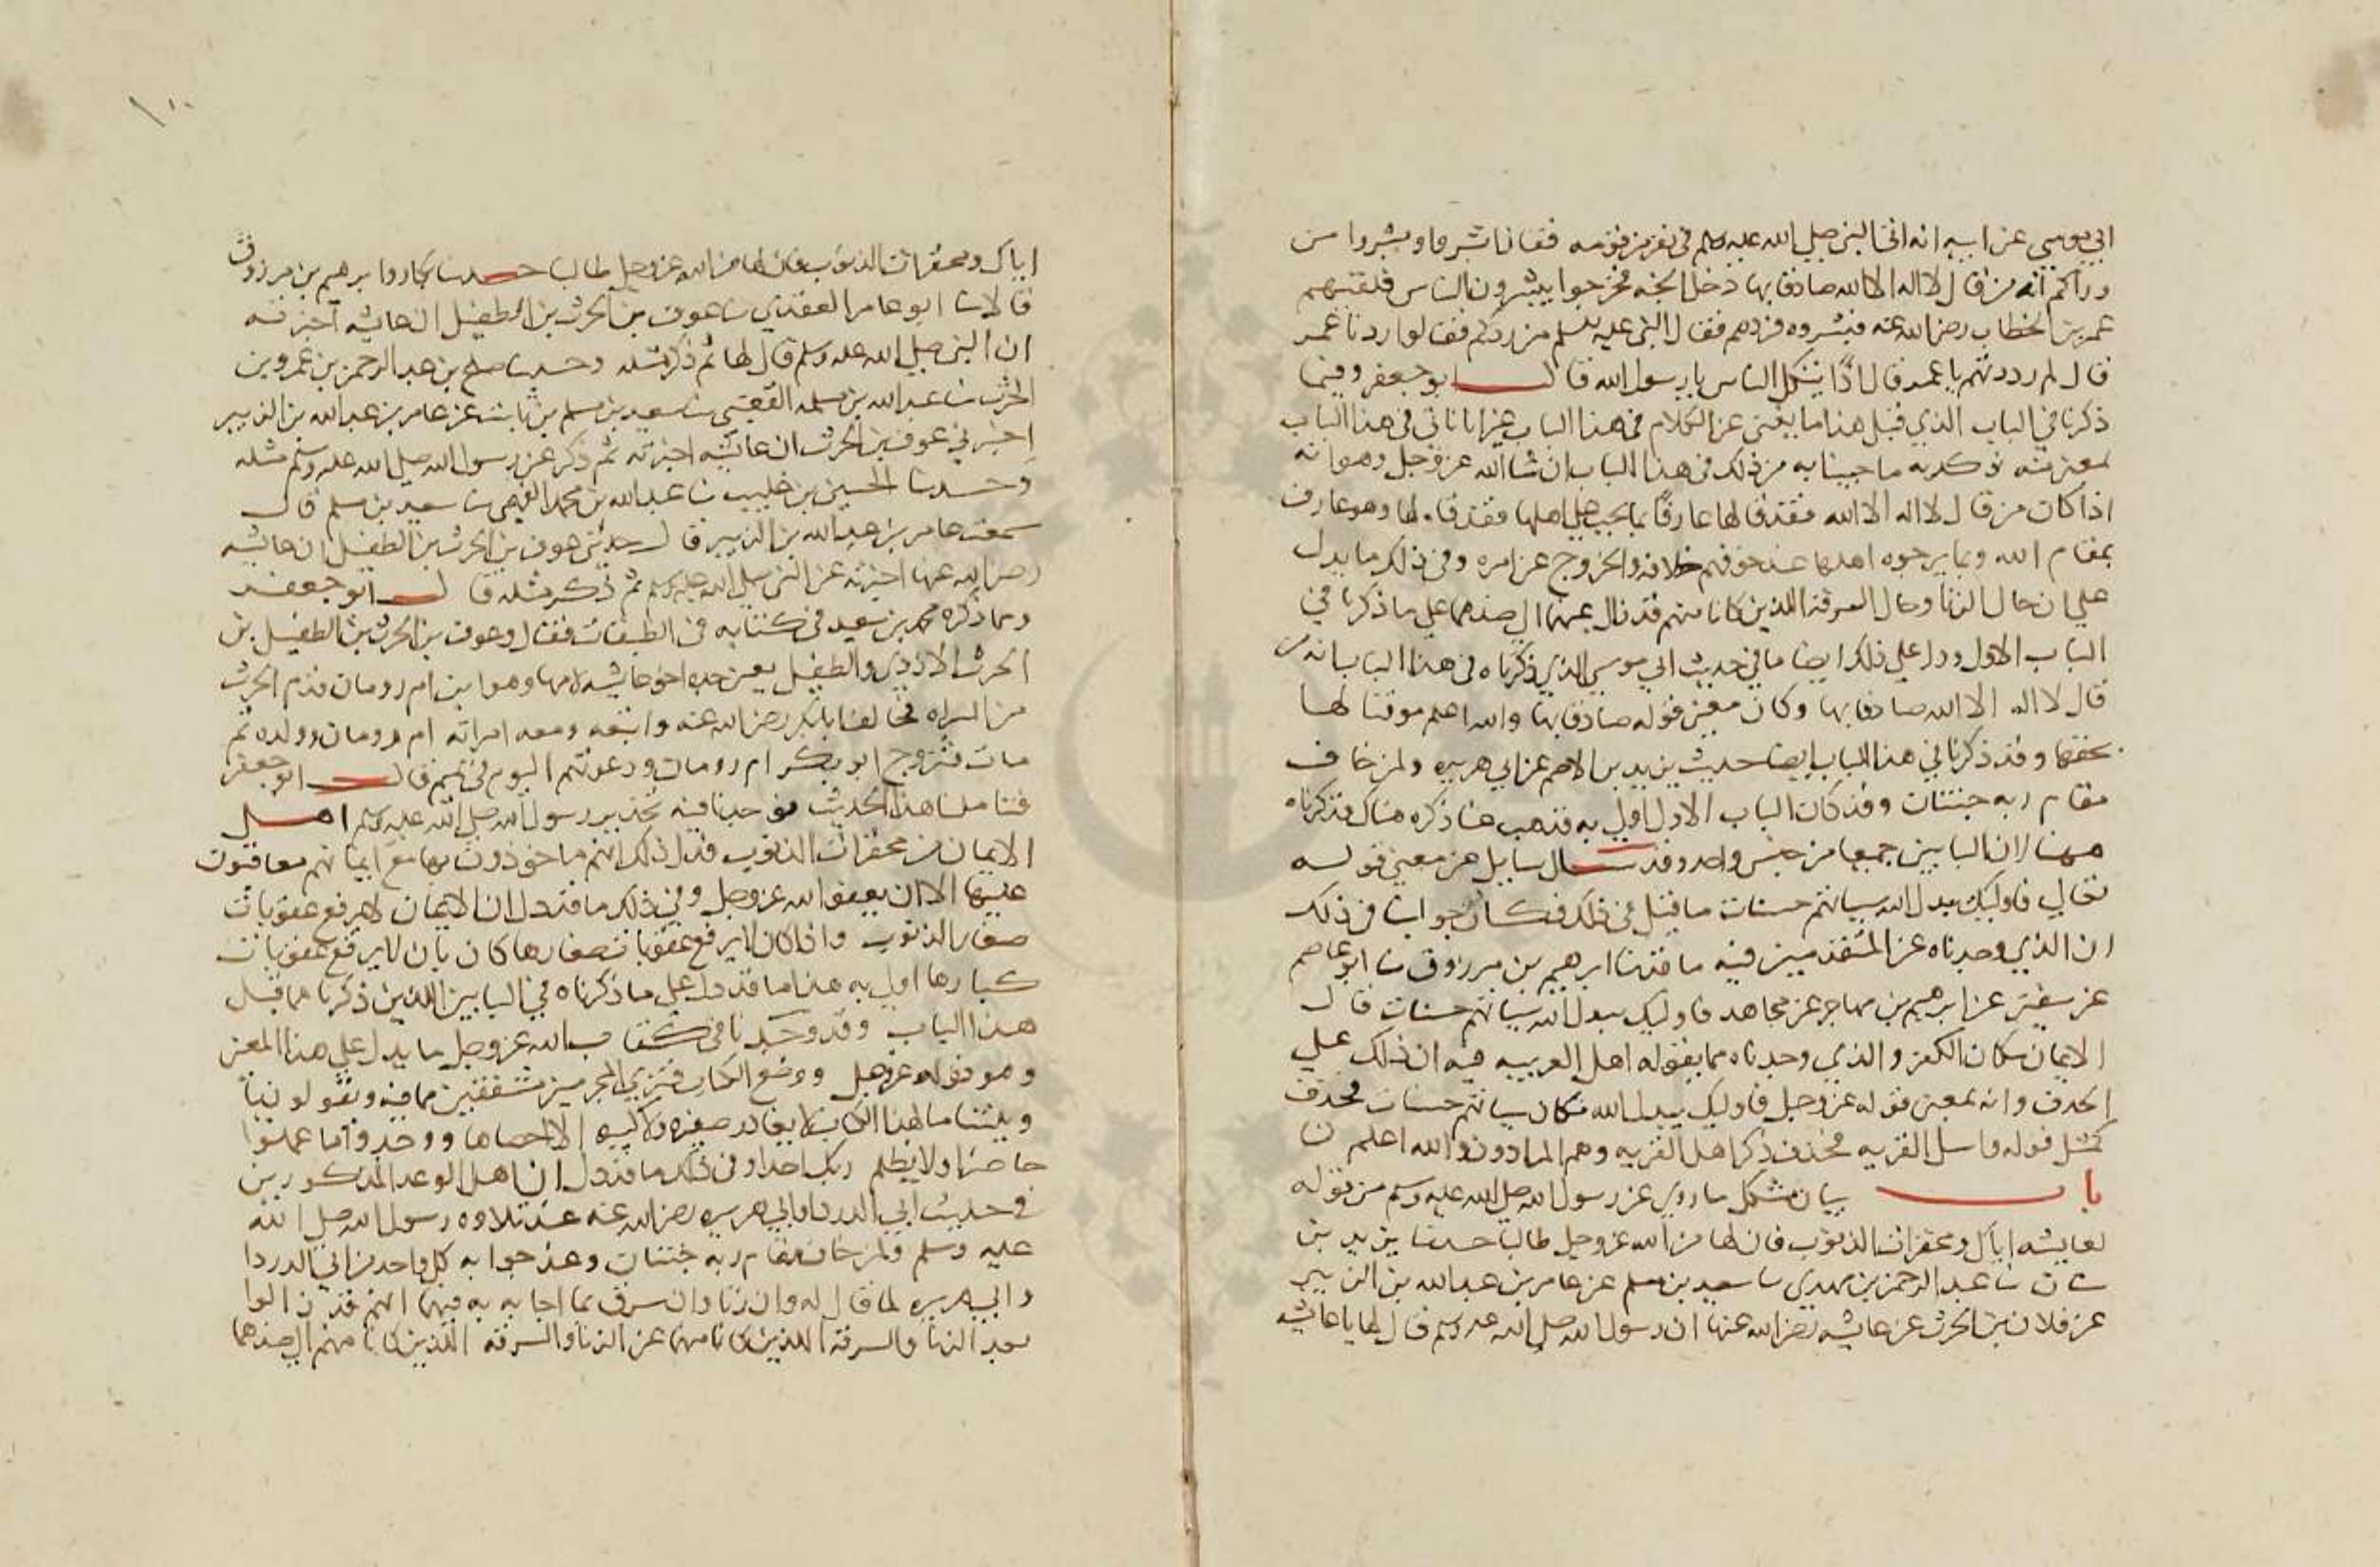 ابي موسي عن ابيه انه اتي النبي صلي الله عليه وسلم في نفر من قومه فقال ابشروا وبشروا من
وراكم انه من قال لا اله الا الله صادقا بها دخل الجنه فخرجوا يبشرون الناس فلقيهم
عمر بن الخطاب رضي الله عنه فبشروه فردهم فقال النبي عليه السلم من ردكم فقالوا ردنا عمر
قال لم رددتهم يا عمر قال اذًا يتكل الناس يا رسول الله قال ابو جعفر وفيما
ذكرنا في الباب الذي قبل هذا ما يغني عن الكلام في هذا الباب غير انا ناتي في هذا الباب
بمعني منه نوكد به ما جينا به من ذلك في هذا الباب ان شا الله عز وجل وهو انه
اذا كان من قال لا اله الا الله فقد قالها عارفًا بما يجب علي اهلها فقد قالها وهو عارف
بمقام الله وبما يرجوه اهلها عند خوفهم خلافه والخروج عن امره وفي ذلك ما يدل
علي ان حال الزنا وحال السرقه اللذين كانا منهم قد زال عنهما الي ضدهما علي ما ذكرنا في
الباب الاول ودل علي ذلك ايضا ما في حديث ابي موسي الذي ذكرناه في هذا الباب انه من
قال لا اله الا الله صادقا بها وكان معني قوله صادقا بها والله اعلم موفيا لها
بحقها وقد ذكرنا في هذا الباب ايضا حديث يزيد بن الاصم عن ابي هريره ولمن خاف
مقام ربه جنتان وقد كان الباب الاول اولي به فذهب عنا ذكره هناك فذكرناه
ههنا اذ ان البابين جميعا من جنس واحد وقد سال سايل عن معني قوله
تعالي فاوليك يبدل الله سياتهم حسنات ما قيل في ذلك فكان جوابنا في ذلك
ان الذي وجدناه عن المتقدمين فيه ما قد نا ابرهيم بن مرزوق نا ابو عاصم
عن سفين عن ابرهيم بن مهاجر عن مجاهد فاوليك يبدل الله سياتهم حسنات قال
الايمان مكان الكفر والذي وجدناه مما يقوله اهل العربيه فيه ان ذلك علي
الحذف وانه بمعني قوله عز وجل فاوليك يبدل الله مكان سياتهم حسنات فحذف
كمثل قوله واسل القريه فحذف ذكر اهل القريه وهم المرادون والله اعلم
باب بيان مشكل ما روي عن رسول الله صلي الله عليه وسلم من قوله
لعايشه اياك ومحقرات الذنوب فان لها من الله عز وجل طالبا حدثنا يزيد بن
سنان نا عبد الرحمن بن مهدي نا سعيد بن مسلم عن عامر بن عبد الله بن الزبير
عن فلان بن الحرث عن عايشه رضي الله عنها ان رسول الله صلي الله عليه وسلم قال لها يا عايشه
١٠٠
اياك ومحقرات الذنوب فان لها من الله عز وجل طالبا حدثنا بكار وابرهيم بن مرزوق
قالا نا ابو عامر العقدي نا عوف بن الحرث بن الطفيل ان عايشه اخبرته
ان النبي صلي الله عليه وسلم قال لها ثم ذكر مثله وحدثنا صلح بن عبد الرحمن بن عمرو بن
الحرث نا عبد الله بن مسلمه القعنبي نا سعيد بن مسلم بن ثابت عن عامر بن عبد الله بن الزبير
اخبرني عوف بن الحرث ان عايشه اخبرته ثم ذكر عن رسول الله صلي الله عليه وسلم مثله
وحدثنا الحسين بن نا عبد الله بن محمد نا سعيد بن مسلم قال
سمعت عامر بن عبد الله بن الزبير قال حدثني عوف بن الحرث بن الطفيل ان عايشه
رضي الله عنها اخبرته عن النبي صلي الله عليه وسلم ثم ذكر مثله قال ابو جعفر
ومما ذكره محمد بن سعيد في كتابه في الطبقات فقال وعوف بن الحرث بن الطفيل بن
الحرث الازدي والطفيل يعني جده اخو عايشه لامها وهو ابن ام رومان قدم الحرث
من السراه فحالف ابا بكر رضي الله عنه واتبعه ومعه امراته ام رومان وولده ثم
مات فتزوج ابو بكر ام رومان ودعوتهم اليوم في تيم قال ابو جعفر
فتاملنا هذا الحديث فوجدنا فيه تحذير رسول الله صلي الله عليه وسلم اهل
الايمان من محقرات الذنوب فدل ذلك انهم ماخوذون بها مع ايمانهم معاقبون
عليها الا ان يعفو الله عز وجل وفي ذلك ما قد دل ان الايمان لا يرفع عقوبات
صغار الذنوب واذا كان لا يرفع عقوبات صغارها كان بان لا يرفع عقوبات
كبارها اولي به هذا ما قد دل علي ما ذكرناه في البابين اللذين ذكرنا مما قبل
هذا الباب وقد وجدنا في كتاب الله عز وجل ما يدل علي هذا المعني
وهو قوله عز وجل ووضع الكتاب فتري المجرمين مشفقين مما فيه ويقولون يا
ويلتنا ما لهذا الكتاب لا يغادر صغيره ولا كبيره الا احصاها ووجدوا ما عملوا
حاضرا ولا يظلم ربك احدا وفي ذلك ما قد دل ان اهل الوعد المذكورين
في حديث ابي الدردا وابي هريره رضي الله عنه عند تلاوه رسول الله صلي الله
عليه وسلم ولمن خاف مقام ربه جنتان وعند جوابه كل واحد من ابي الدردا
وابي هريره لما قال له وان زنا وان سرق بما اجابه به فيهما انهم قد زالوا
بعد الزنا والسرقه اللذين كانا منهما عن الزنا والسرقه اللذين كانا منهم الي ضدهما